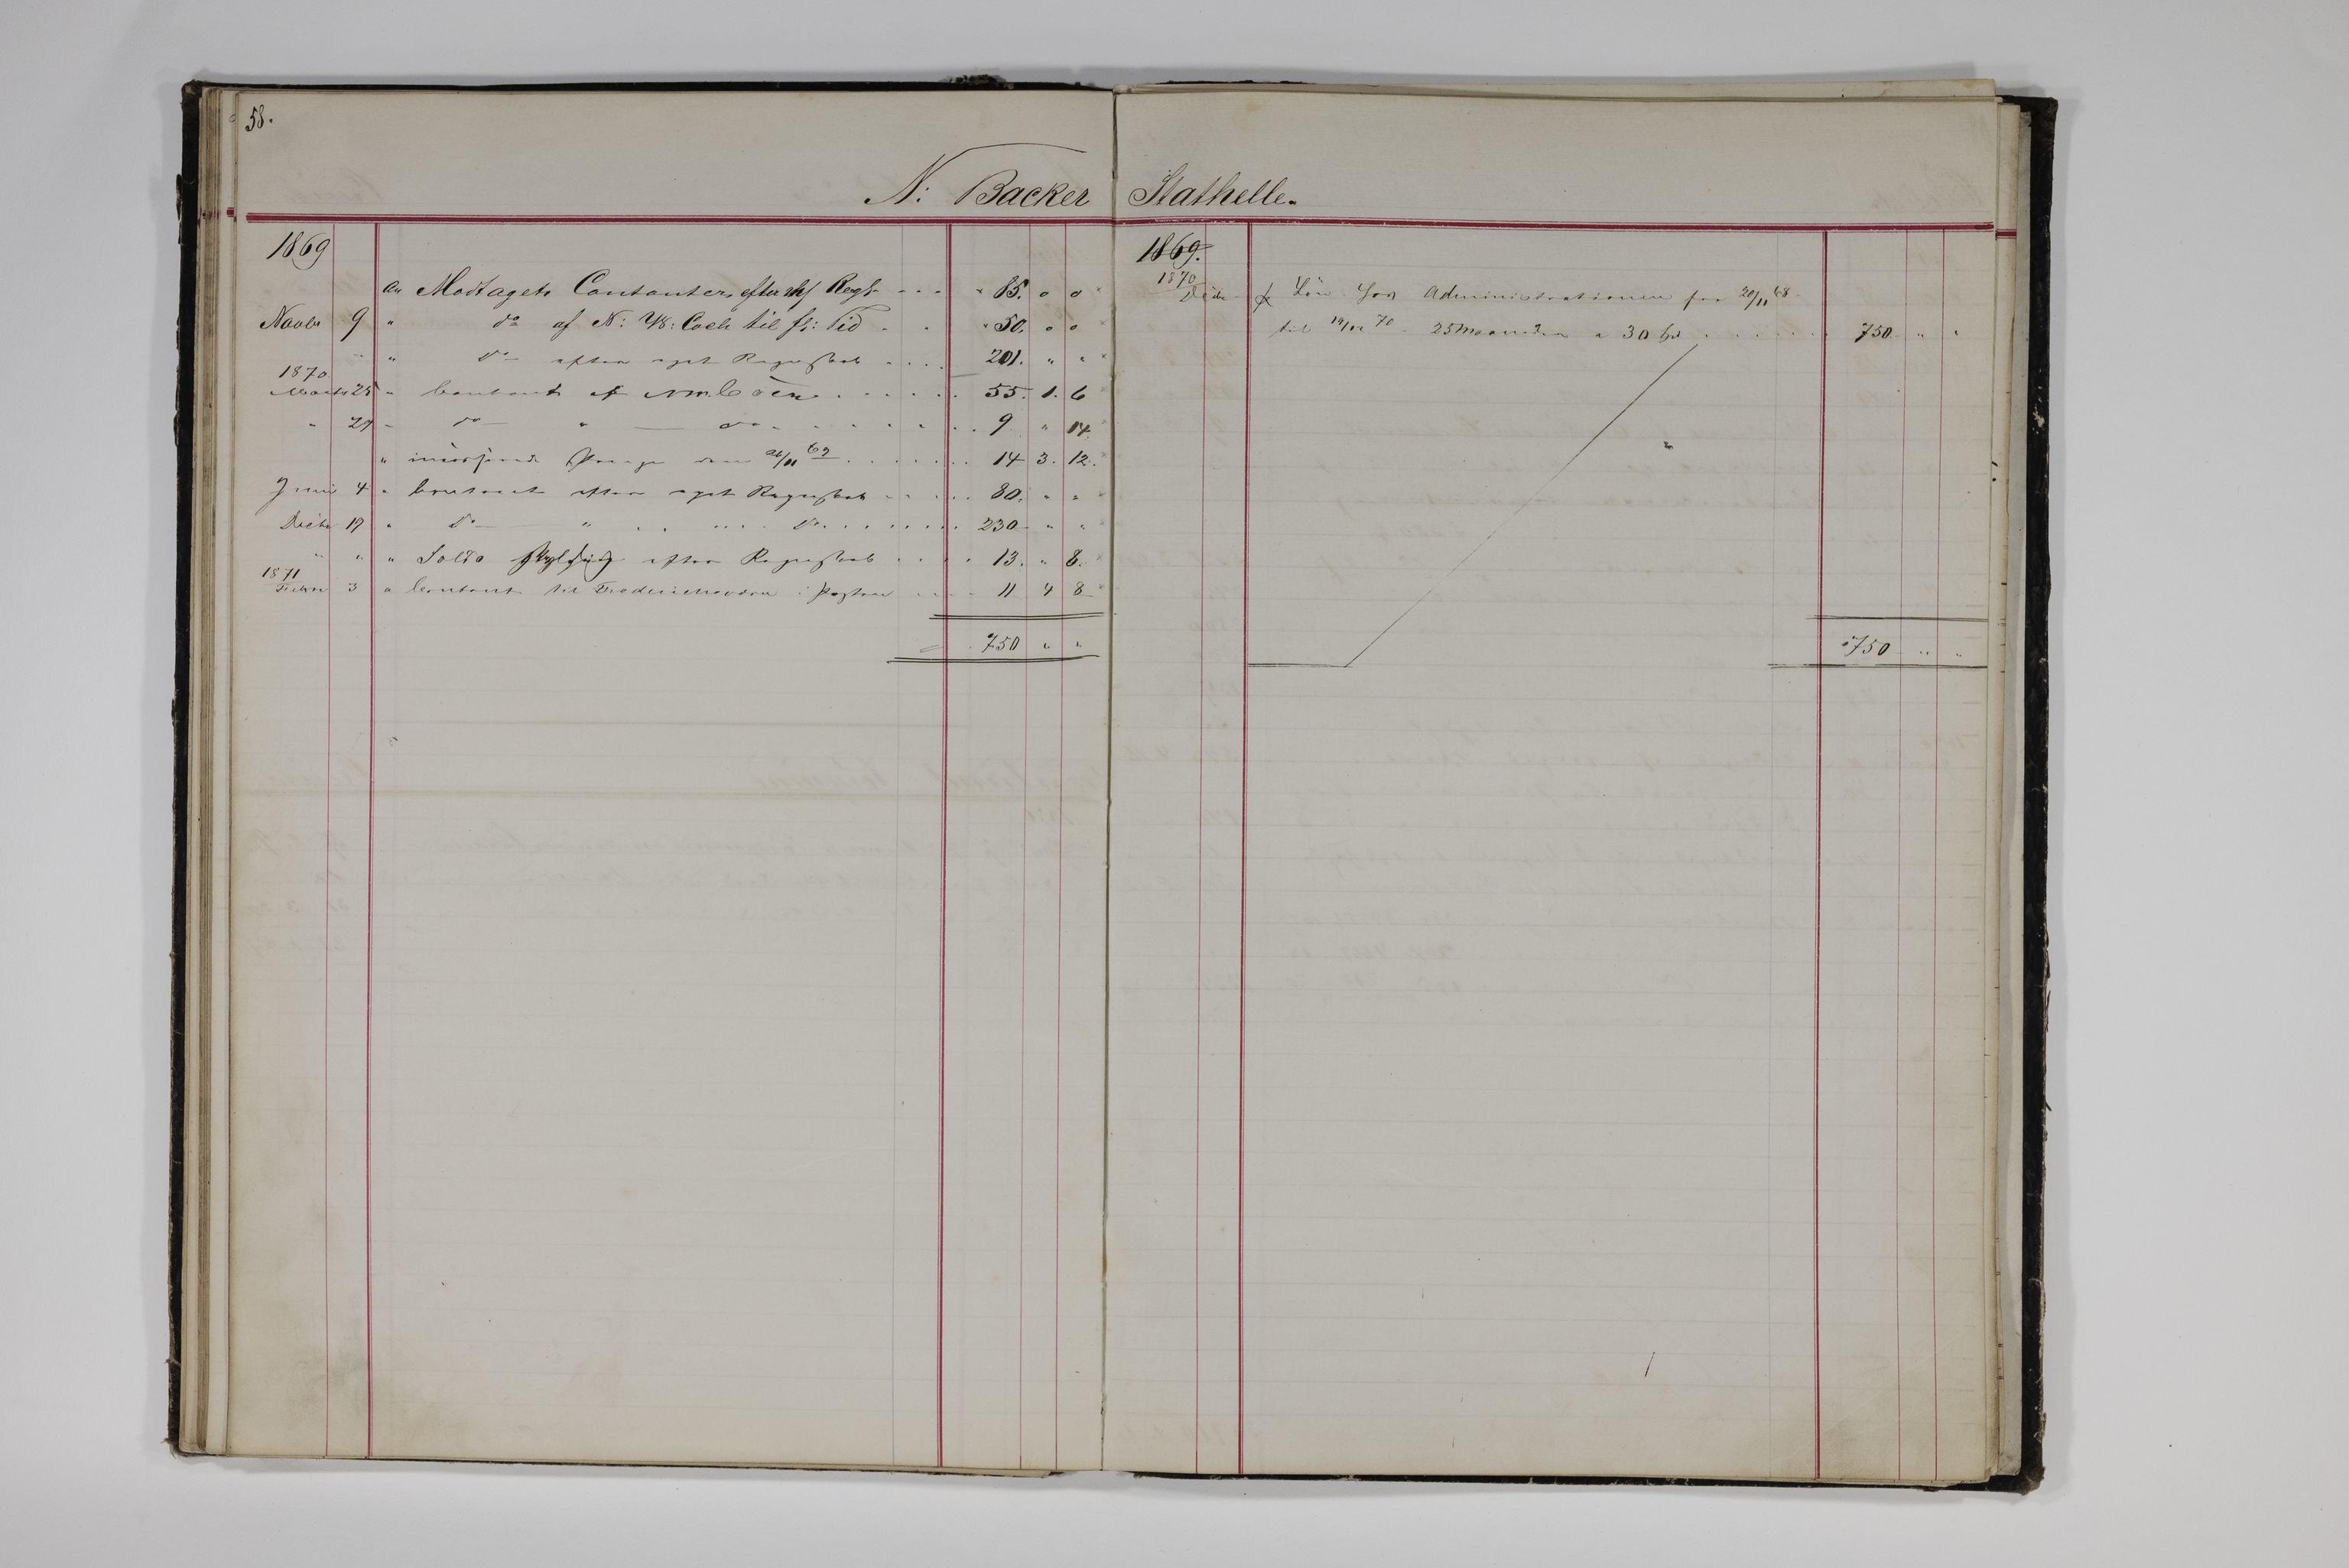 58.
N: Backer Stathelle.
1869
an Modtaget Contanter efter Regs 85. 0 0
Novbr 9 " do af N: W: Coch til fr: Tid 50. 0 0
" " do efter eget Regnskab 201. " "
1870
Marts 25 " Contant af 55. 1. 6
" 29 " do " do 9 " 14
" den 26/11 69 14 3. 12.
Juni 4 " Contant efter eget Regnskab 80. " "
Decbr 19 " do " do 230 " "
" " " Saldo efter Regnskab 13. " 8.
1871
Febr 3 " Contant til i Posten 11 4 8
750 " "
1869.
1870
Decbr Lön for Administrationen fra 20/11 68
til 19/12 70 25 Maaneder a 30 750 " "
750 " "